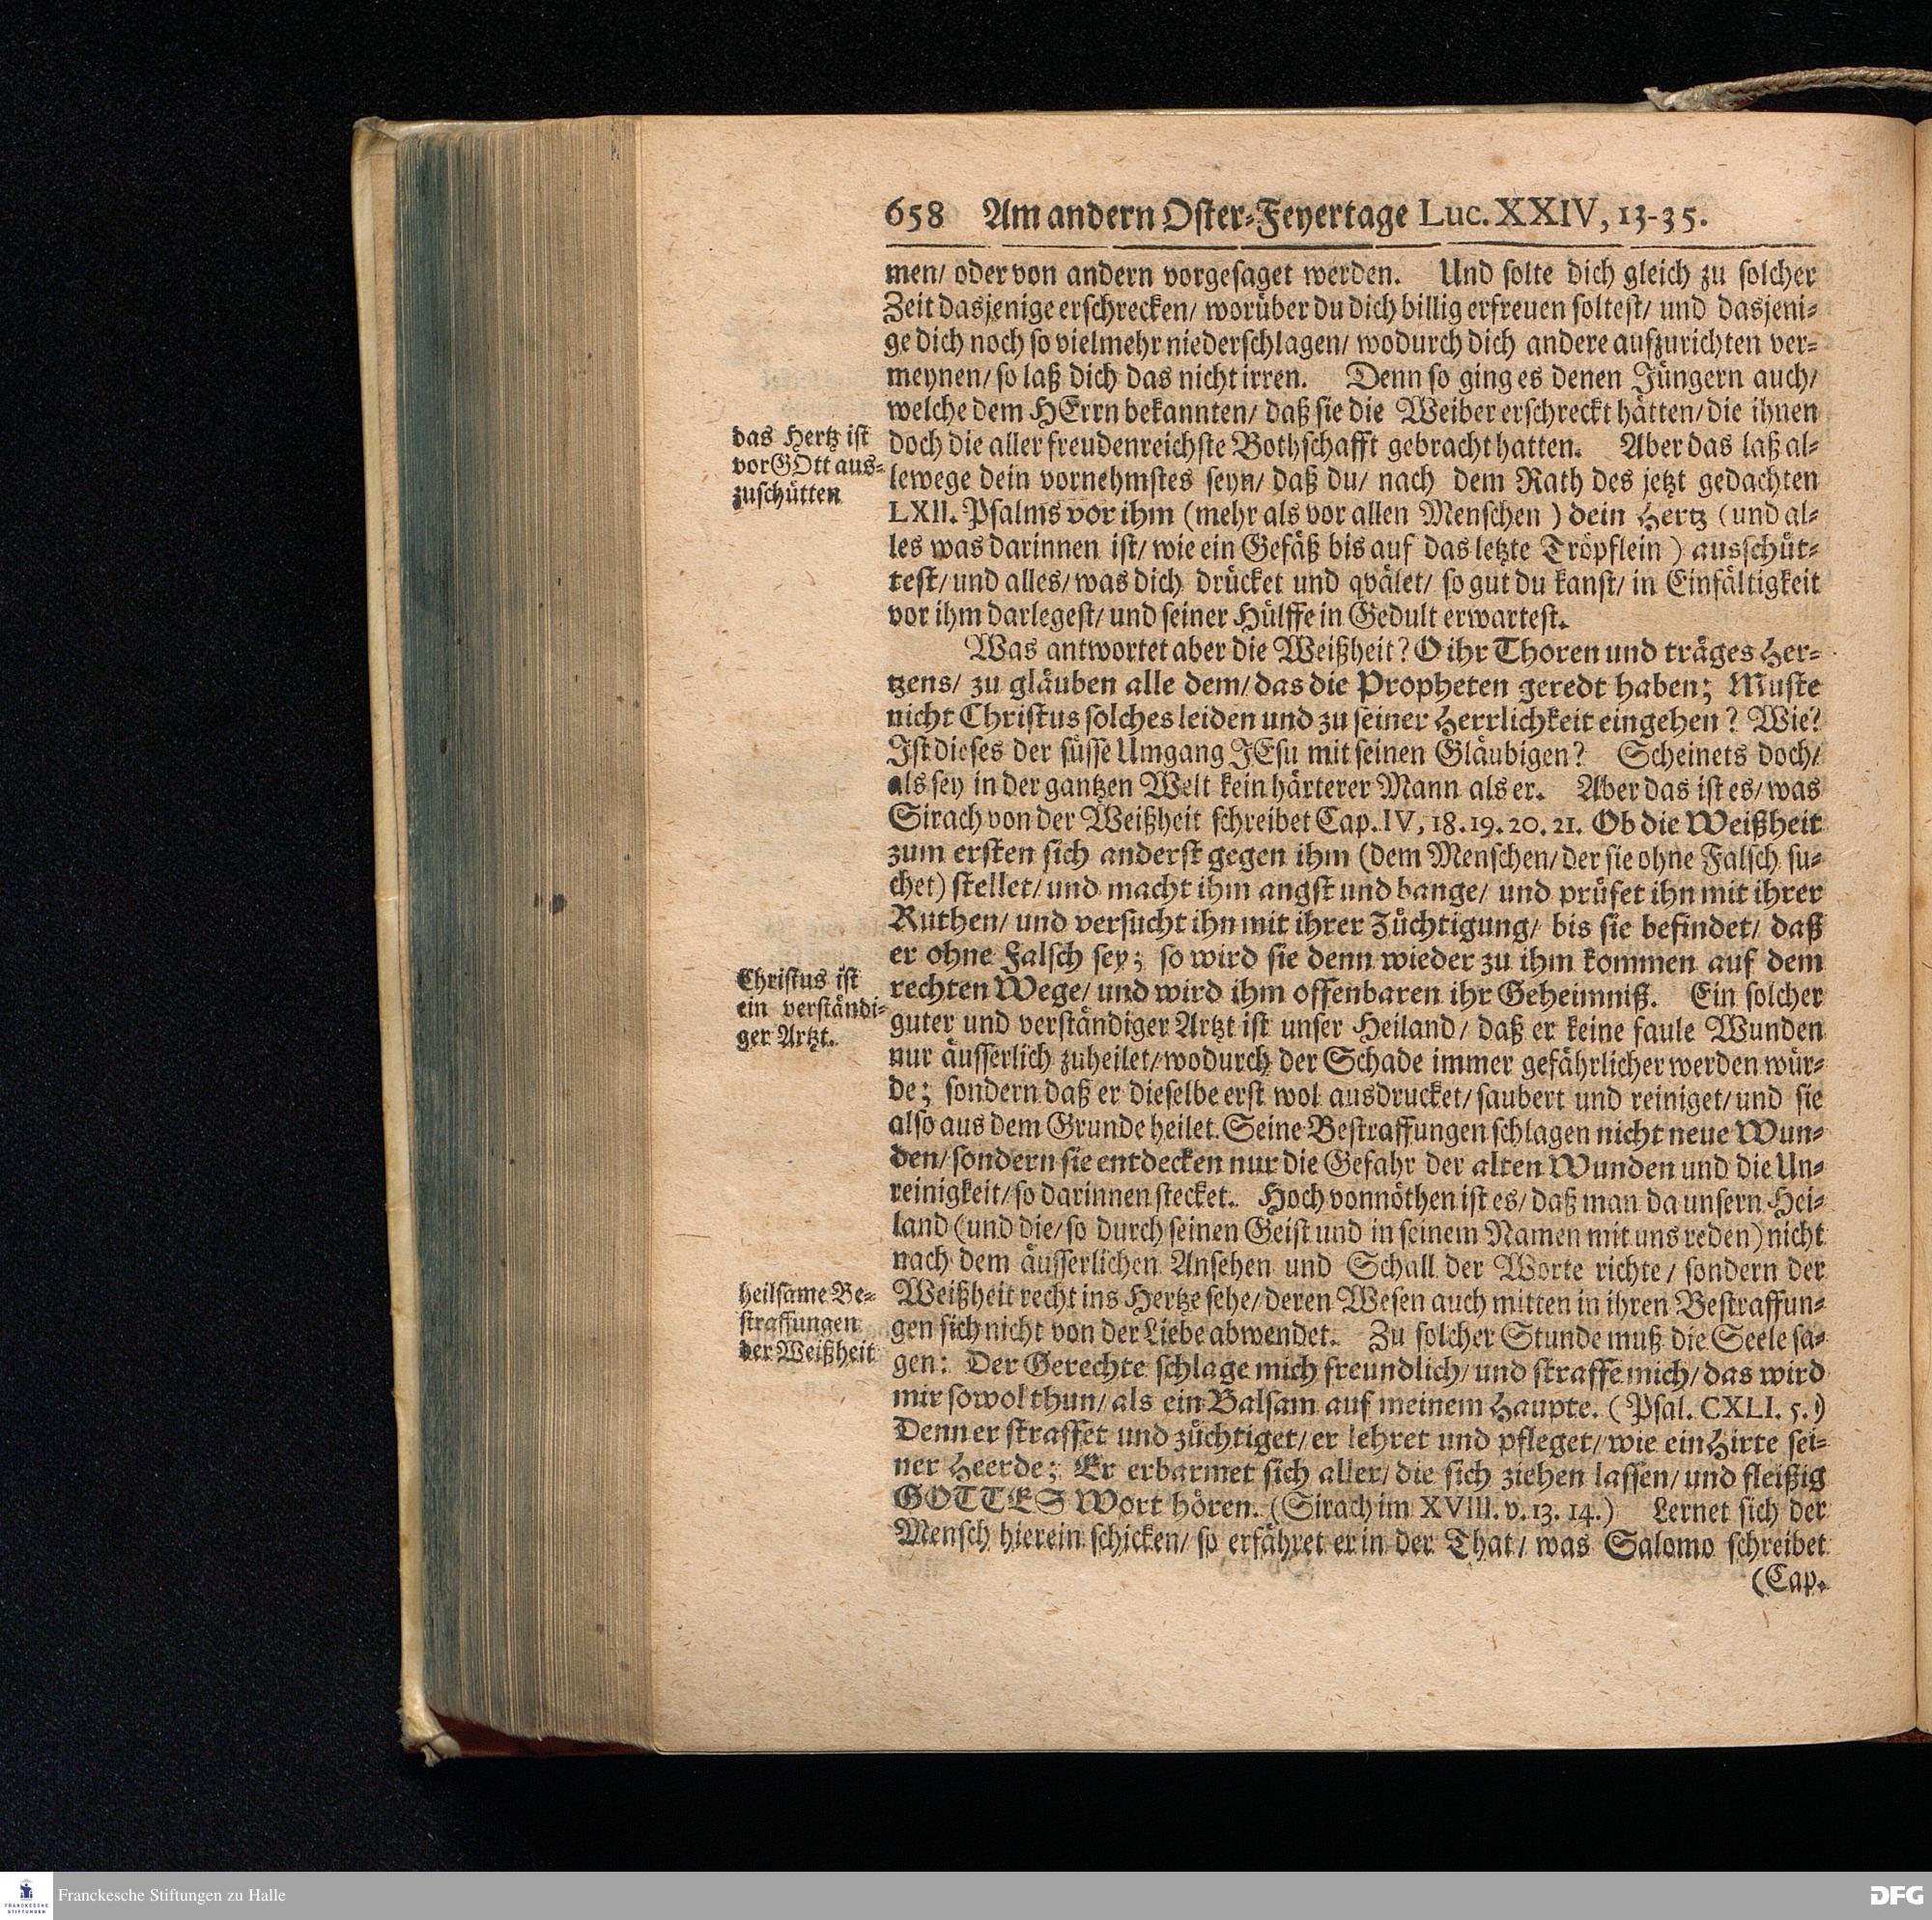 658 Am andern Oster-Feyertage Luc. XXIV, 13-35.
men/ oder von andern vorgesaget werden. Und solte dich gleich zu solcher
Zeit dasjenige erschrecken/ worüber du dich billig erfreuen soltest/ und dasjeni-
ge dich noch so vielmehr niederschlagen/ wodurch dich andere aufzurichten ver-
meynen/ so laß dich das nicht irren. Denn so ging es denen Jüngern auch/
welche dem HErrn bekannten/ daß sie die Weiber erschreckt hätten/ die ihnen
doch die aller freudenreichste Bothschafft gebracht hatten. Aber das laß al-
lewege dein vornehmstes seyn/ daß du/ nach dem Rath des jetzt gedachten
LXII. Psalms vor ihm (mehr als vor allen Menschen) dein Hertz (und al-
les was darinnen ist/ wie ein Gefäß bis auf das letzte Tröpflein) ausschüt-
test/ und alles/ was dich drücket und qvälet/ so gut du kanst/ in Einfältigkeit
vor ihm darlegest/ und seiner Hülffe in Gedult erwartest.
das Hertz ist
vor GOtt aus-
zuschütten
Was antwortet aber die Weißheit? O ihr Thoren und träges Her-
tzens/ zu gläuben alle dem/ das die Propheten geredt haben; Muste
nicht Christus solches leiden und zu seiner Herrlichkeit eingehen? Wie?
Ist dieses der süsse Umgang JEsu mit seinen Gläubigen? Scheinets doch/
als sey in der gantzen Welt kein härterer Mann als er. Aber das ist es/ was
Sirach von der Weißheit schreibet Cap. IV, 18. 19. 20. 21. Ob die Weißheit
zum ersten sich anderst gegen ihm (dem Menschen/ der sie ohne Falsch su-
chet) stellet/ und macht ihm angst und bange/ und prüfet ihn mit ihrer
Ruthen/ und versucht ihn mit ihrer Züchtigung/ bis sie befindet/ daß
er ohne Falsch sey; so wird sie denn wieder zu ihm kommen auf dem
rechten Wege/ und wird ihm offenbaren ihr Geheimniß. Ein solcher
guter und verständiger Artzt ist unser Heiland/ daß er keine faule Wunden
nur äusserlich zuheilet/ wodurch der Schade immer gefährlicher werden wür-
de; sondern daß er dieselbe erst wol ausdrucket/ saubert und reiniget/ und sie
also aus dem Grunde heilet. Seine Bestraffungen schlagen nicht neue Wun-
den/ sondern sie entdecken nur die Gefahr der alten Wunden und die Un-
reinigkeit/ so darinnen stecket. Hoch vonnöthen ist es/ daß man da unsern Hei-
land (und die/ so durch seinen Geist und in seinem Namen mit uns reden) nicht
nach dem äusserlichen Ansehen und Schall der Worte richte/ sondern der
Weißheit recht ins Hertze sehe/ deren Wesen auch mitten in ihren Bestraffun-
gen sich nicht von der Liebe abwendet. Zu solcher Stunde muß die Seele sa-
gen: Der Gerechte schlage mich freundlich/ und straffe mich/ das wird
mir so wol thun/ als ein Balsam auf meinem Haupte. (Psal. CXLI. 5.)
Denn er straffet und züchtiget/ er lehret und pfleget/ wie ein Hirte sei-
ner Heerde; Er erbarmet sich aller/ die sich ziehen lassen/ und fleißig
GOTTES Wort hören. (Sirach im XVIII. v. 13. 14.) Lernet sich der
Mensch hierein schicken/ so erfähret er in der That/ was Salomo schreibet
(Cap.
Christus ist
ein verständi-
ger Artzt.
heilsame Be-
straffungen
der Weißheit
Franckesche Stiftungen zu Halle
FRANCKESCHE
STIFTUNGEN
DFG